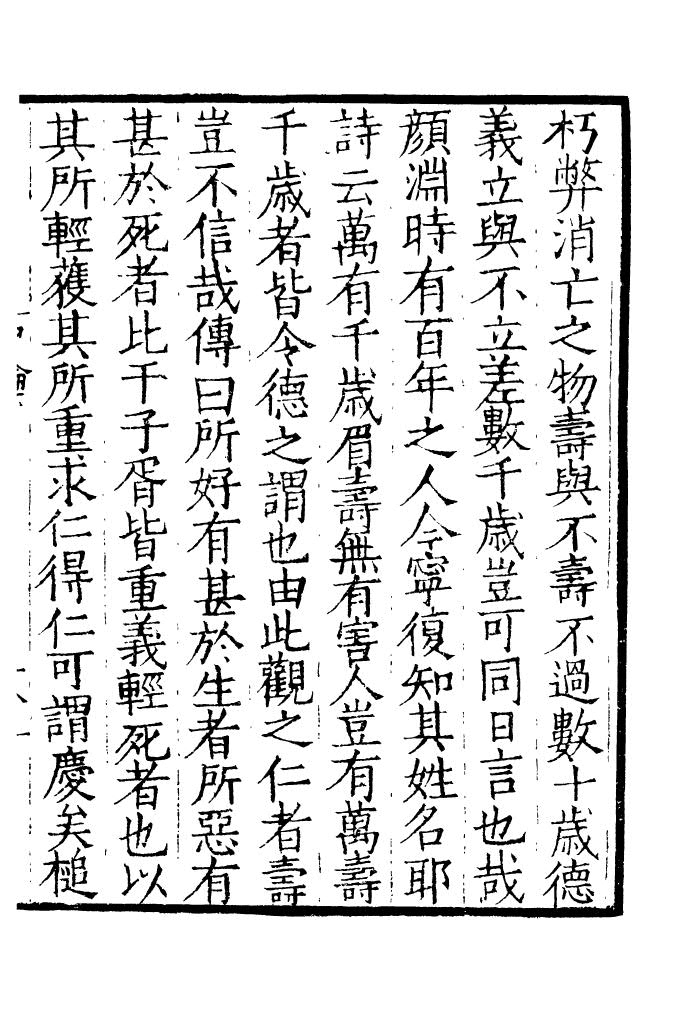 朽弊消亡之物壽與不壽不過數十歲德
義立與不立差數千歲豈可同日言也哉
顏淵時有百年之人今寧復知其姓名耶
詩云萬有千歲眉壽無有害人豈有萬壽
千歲者皆令德之謂也由此觀之仁者壽
豈不信哉傳曰所好有甚於生者所惡有
甚於死者比干子胥皆重義輕死者也以
其所輕獲其所重求仁得仁可謂慶矣槌